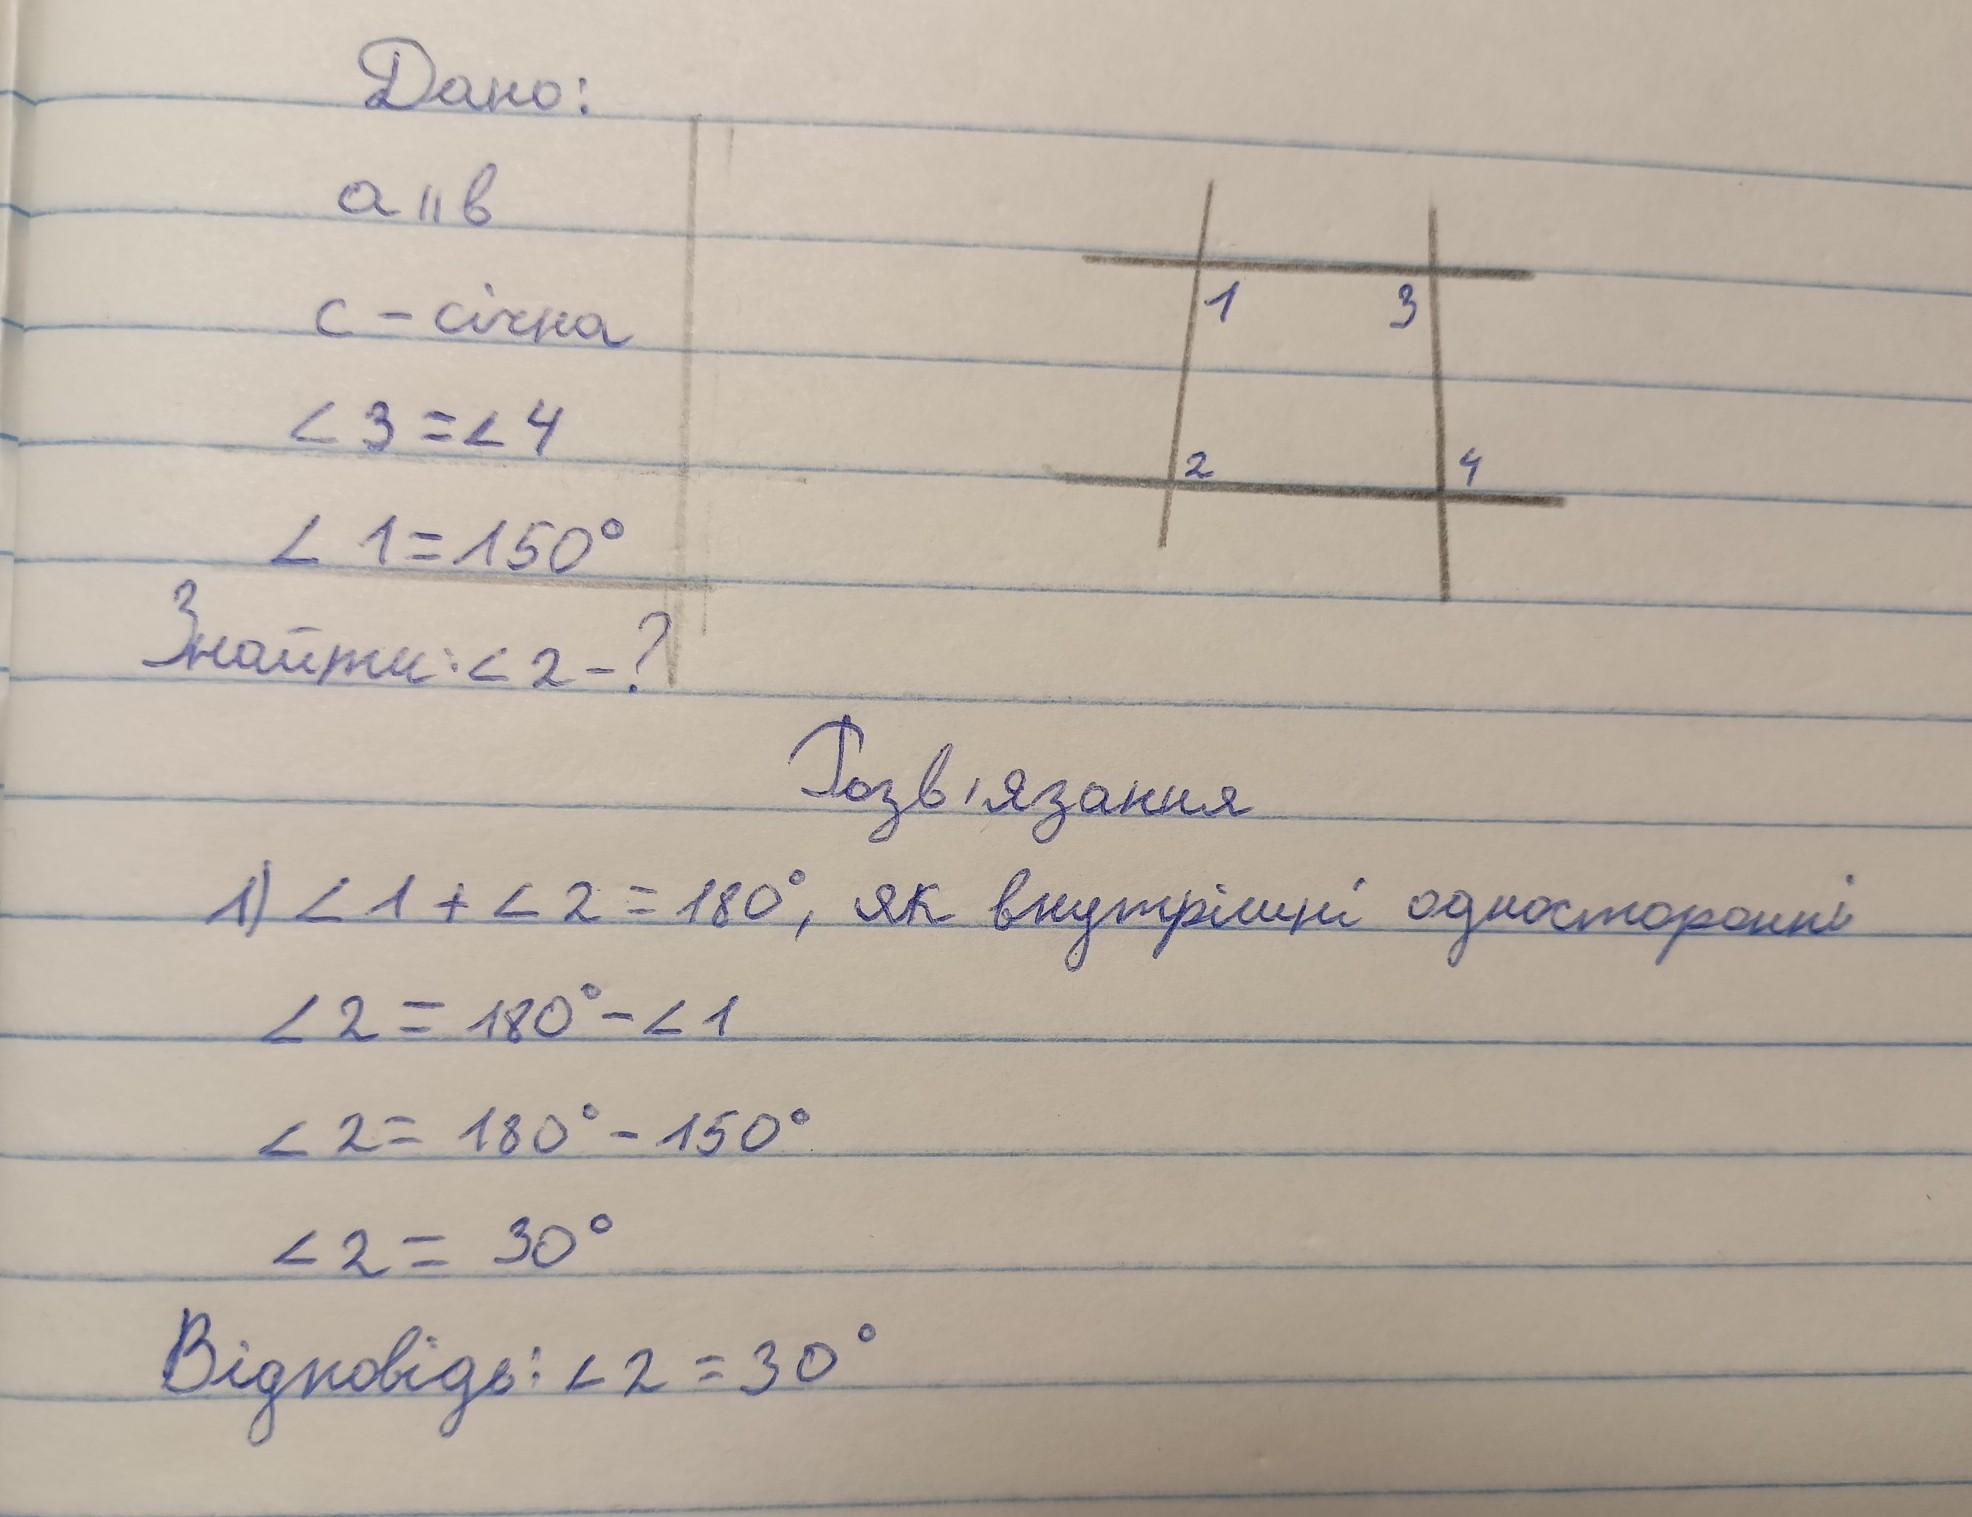 Дано:
a || b
c - січна
∠3 = ∠4
∠1 = 150°
Знайти: ∠2 - ?
1 3
2 4
Розв'язання
1) ∠1 + ∠2 = 180°, як внутрішні односторонні
∠2 = 180° - ∠1
∠2 = 180° - 150°
∠2 = 30°
Відповідь: ∠2 = 30°